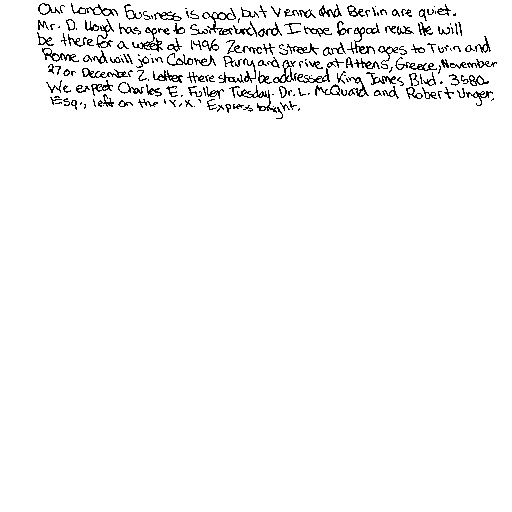 Our London Business is good, but Vienna and Berlin are quiet.
Mr. D. Lloyd has gone to Switzerland and I hope for good news. He will
be there for a week at 1496 Zermott Street and then goes to Turin and
Rome and will join Colonel Parry and arrive at Athens, Greece, November
27 or December 2. Letter there should be addressed King James Blvd. 3580.
We expect Charles E. Fuller Tuesday. Dr. L. McQuaid and Robert Unger,
Esq., left on the "Y.X." Express tonight.